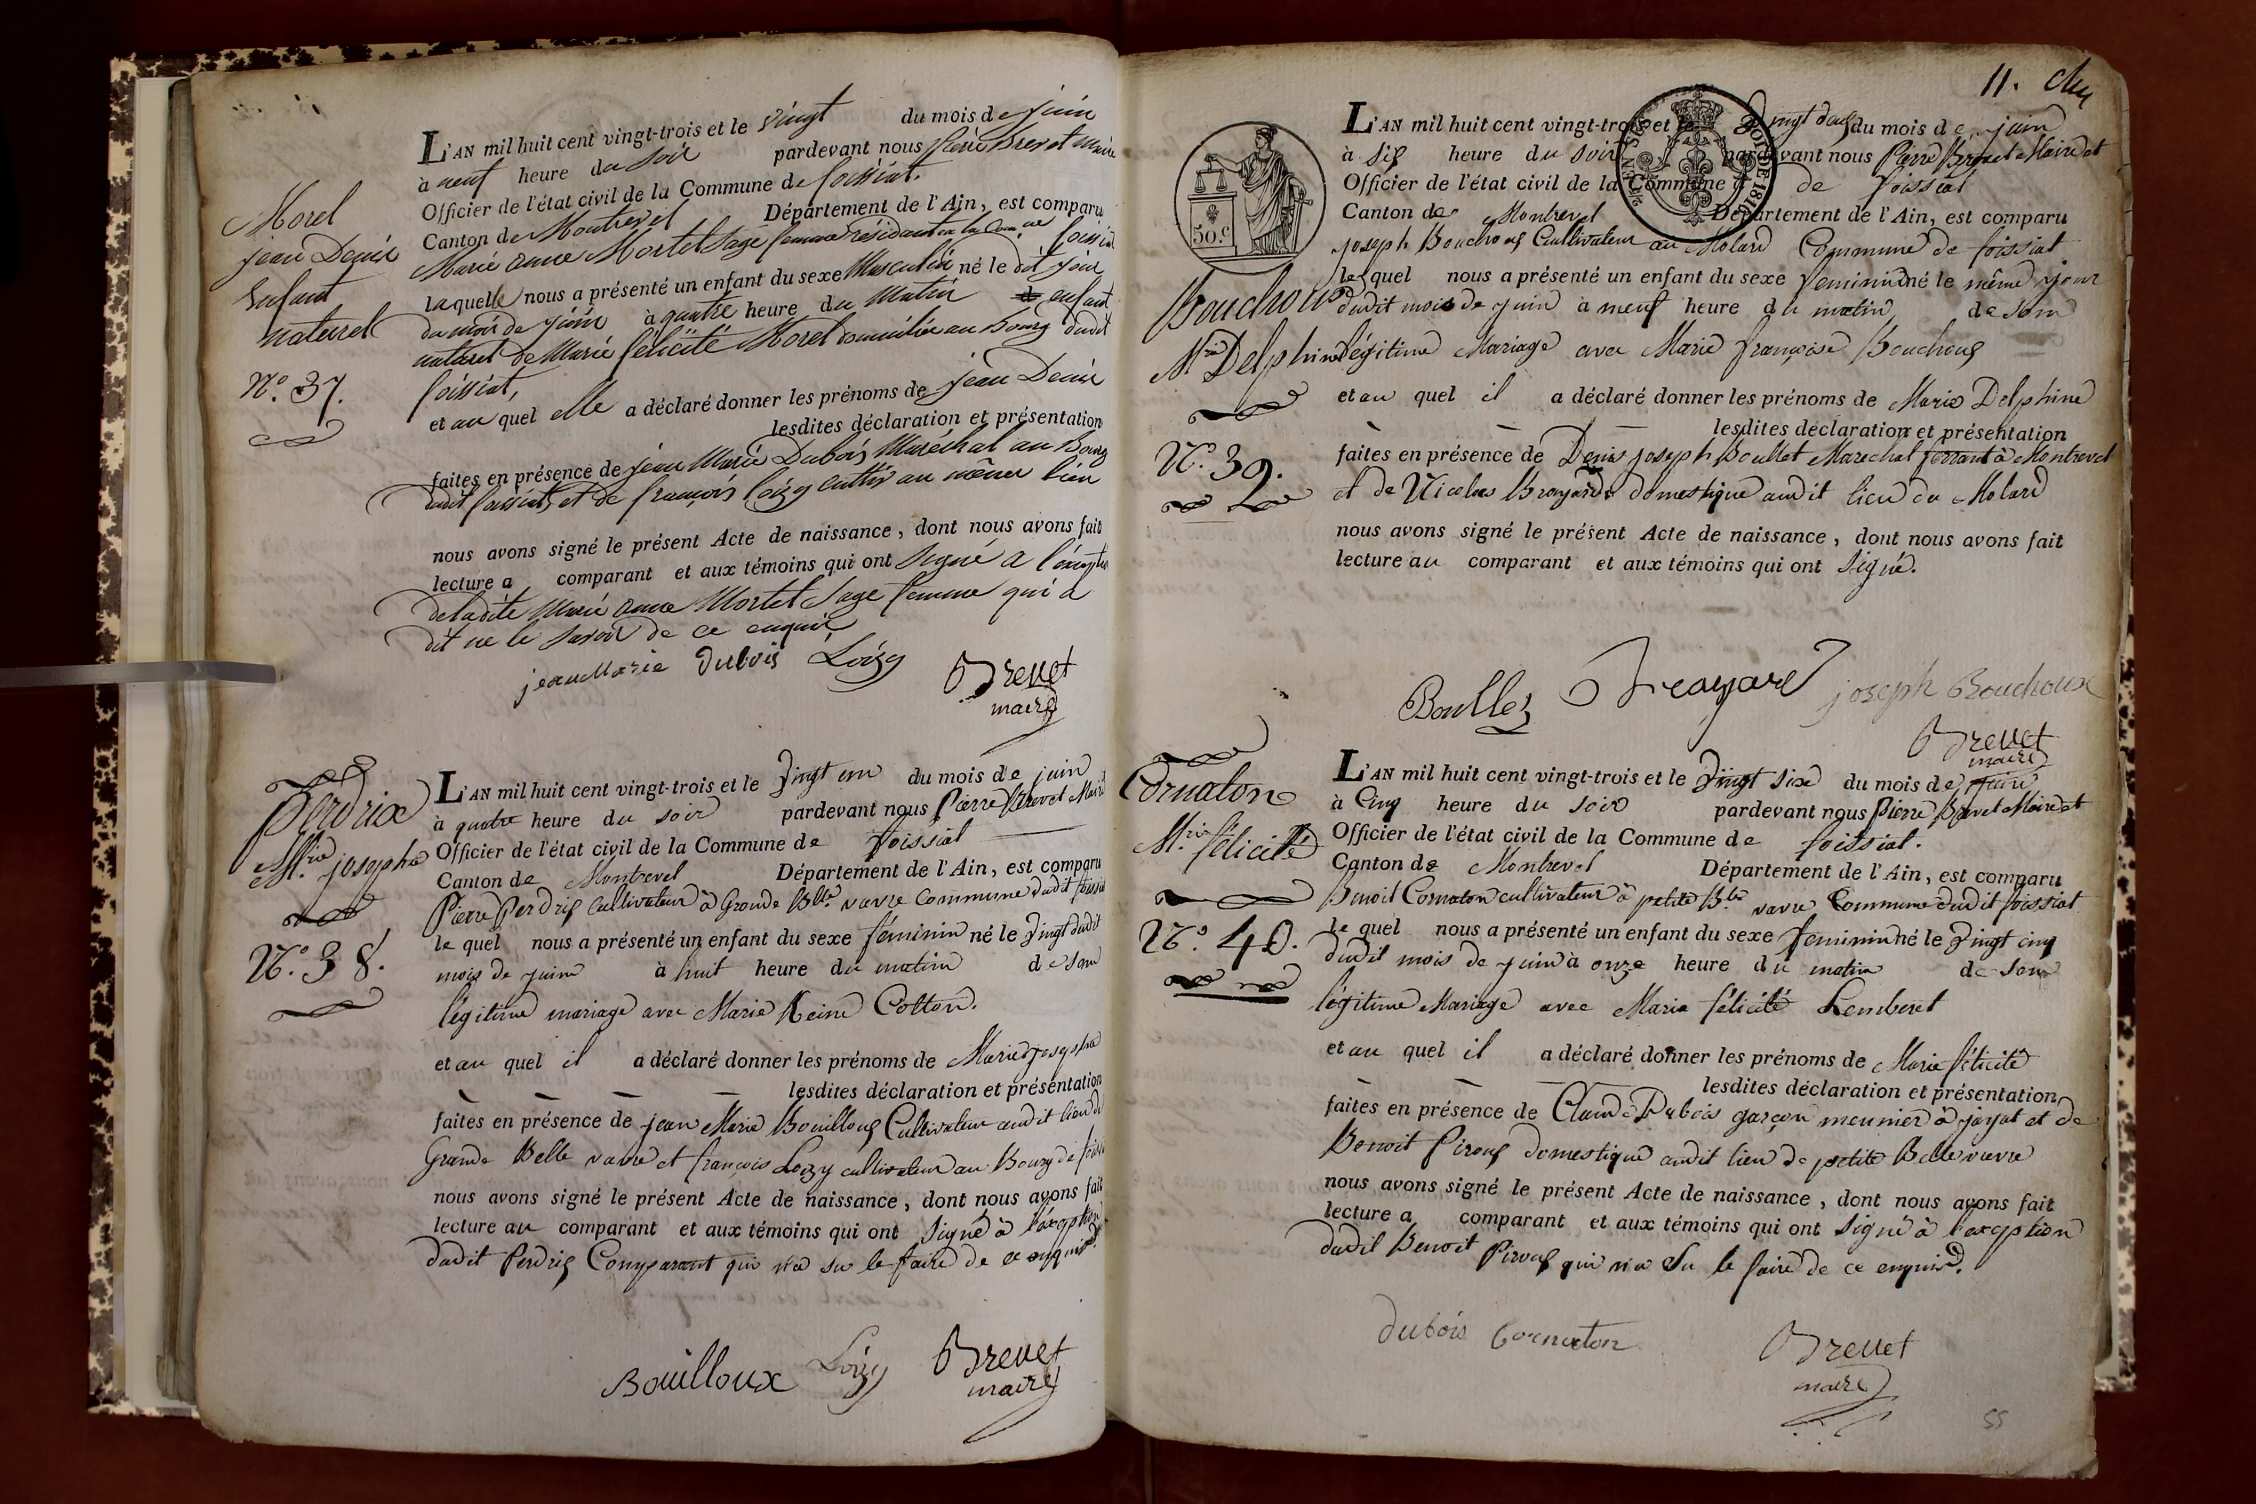 Morel
jean Denis
Enfant
naturel
N.º 37.
L'AN mil huit cent vingt-trois et le vingt du mois de juin
à neuf heure du soir pardevant nous pierre Brevet maire
Officier de l'état civil de la Commune de foissiat.
Canton de Montrevel Département de l'Ain, est comparu
Marie anne Mortel Sage femme résidant en la Com.ne foissiat
laquelle nous a présenté un enfant du sexe Masculin né le dit jour
du mois de juin à quatre heure du Matin enfant
naturel de Marie félicité Morel domiciliée au Bourg dudit
foissiat,
et au quel elle a déclaré donner les prénoms de jean Denis
lesdites déclaration et présentation
faites en présence de jean Marie Dubois Maréchal au Bourg
dudit foissiat, et de françois Loizy cultiv.r au même lieu
nous avons signé le présent Acte de naissance, dont nous avons fait
lecture a comparant et aux témoins qui ont signé a l'exception
deladite Marie anne Mortel Sage femme qui a
dit ne le savoir de ce enquis
jeanMarie Dubois Loizy Brevet
maire
Perdrix
M.rie josephe
N.º 38.
L'AN mil huit cent vingt-trois et le Vingt un du mois de juin
à quatre heure du soir pardevant nous Pierre Brevet Maire
Officier de l'état civil de la Commune de foissiat
Canton de Montrevel Département de l'Ain, est comparu
Pierre Perdrix Cultivateur à Grande B.lle vavre Commune dudit foissiat
le quel nous a présenté un enfant du sexe féminin né le Vingt dudit
mois de juin à huit heure du matin de son
légitime mariage avec Marie Reine Cotton.
et au quel il a déclaré donner les prénoms de Marie josephe
lesdites déclaration et présentation
faites en présence de jean Marie Bouilloux Cultivateur audit lieu de
Grande Belle vavre et françois Loizy cultivateur au Bourg de foissiat
nous avons signé le présent Acte de naissance, dont nous avons fait
lecture au comparant et aux témoins qui ont Signé à l'exception
dudit Perdrix Comparant qui n'a su le faire de ce enquis.
Bouilloux Loizy Brevet
maire
11.
50.c
Bouchoux
M.rie Delphine
N.º 39.
L'AN mil huit cent vingt-trois et le Vingt deux du mois de juin
à six heure du soir pardevant nous Pierre Brevet Maire et
Officier de l'état civil de la Commune de foissiat
Canton de Montrevel Département de l'Ain, est comparu
joseph Bouchoux Cultivateur au Molard Commune de foissiat
lequel nous a présenté un enfant du sexe feminin né le même jour
dudit mois de juin à neuf heure du matin de son
légitime Mariage avec Marie françoise Bouchoux
et au quel il a déclaré donner les prénoms de Marie Delphine
lesdites déclaration et présentation
faites en présence de Denis joseph Boullet Marechal ferrant à Montrevel
et de Nicolas Brayard domestique audit lieu du Molard
nous avons signé le présent Acte de naissance, dont nous avons fait
lecture au comparant et aux témoins qui ont Signé.
Boullet Brayard joseph Bouchoux
Brevet
maire
Cornaton
M.rie félicité
N.º 40.
L'AN mil huit cent vingt-trois et le Vingt six du mois de juin
à Cinq heure du soir pardevant nous Pierre Brevet Maire et
Officier de l'état civil de la Commune de foissiat.
Canton de Montrevel Département de l'Ain, est comparu
Benoit Cornaton cultivateur à petite B.lle vavre Commune dudit foissiat
le quel nous a présenté un enfant du sexe feminin né le Vingt cinq
dudit mois de juin à onze heure du matin de son
légitime Mariage avec Marie félicité Lemberet
et au quel il a déclaré donner les prénoms de Marie félicité
lesdites déclaration et présentation
faites en présence de Claude Dubois garçon meunier à jayat et de
Benoit Piroux domestique audit lieu de petite Belle vavre
nous avons signé le présent Acte de naissance, dont nous avons fait
lecture a comparant et aux témoins qui ont Signé à l'exception
dudit Benoit Piroux qui n'a Su le faire de ce enquis.
Dubois Cornaton Brevet
maire
55